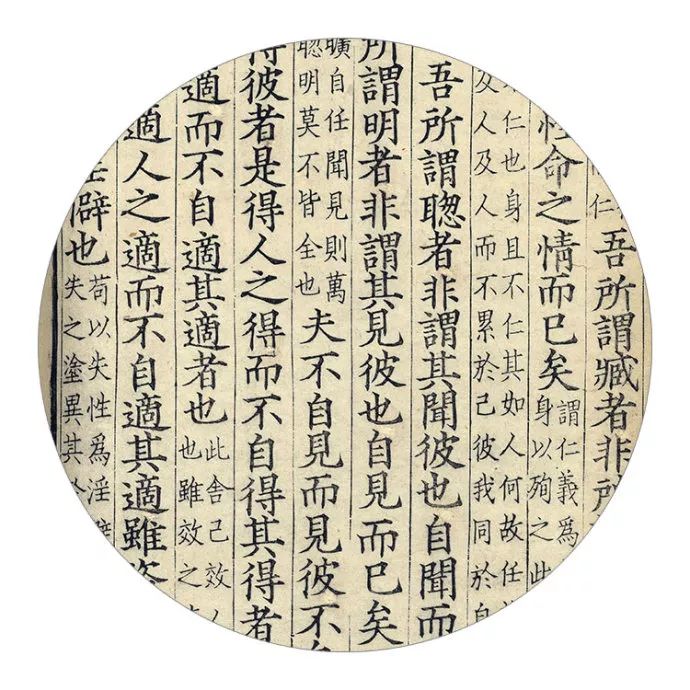 仁
吾所謂臧者非所
性命之情而已矣
謂仁義為
身以殉之此
仁也身且不仁其如人何故任
及人及人而不累於己彼我同於自
吾所謂聦者非謂其聞彼也自聞而
所謂明者非謂其見彼也自見而已矣
曠自任聞見則萬
聦明莫不皆全也
夫不自見而見彼不
得彼者是得人之得而不自得其得者
適而不自適其適者也
此舍己效人
也雖效之
適人之適而不自適其適雖
僻也
苟以失性為淫僻
失之塗異其於